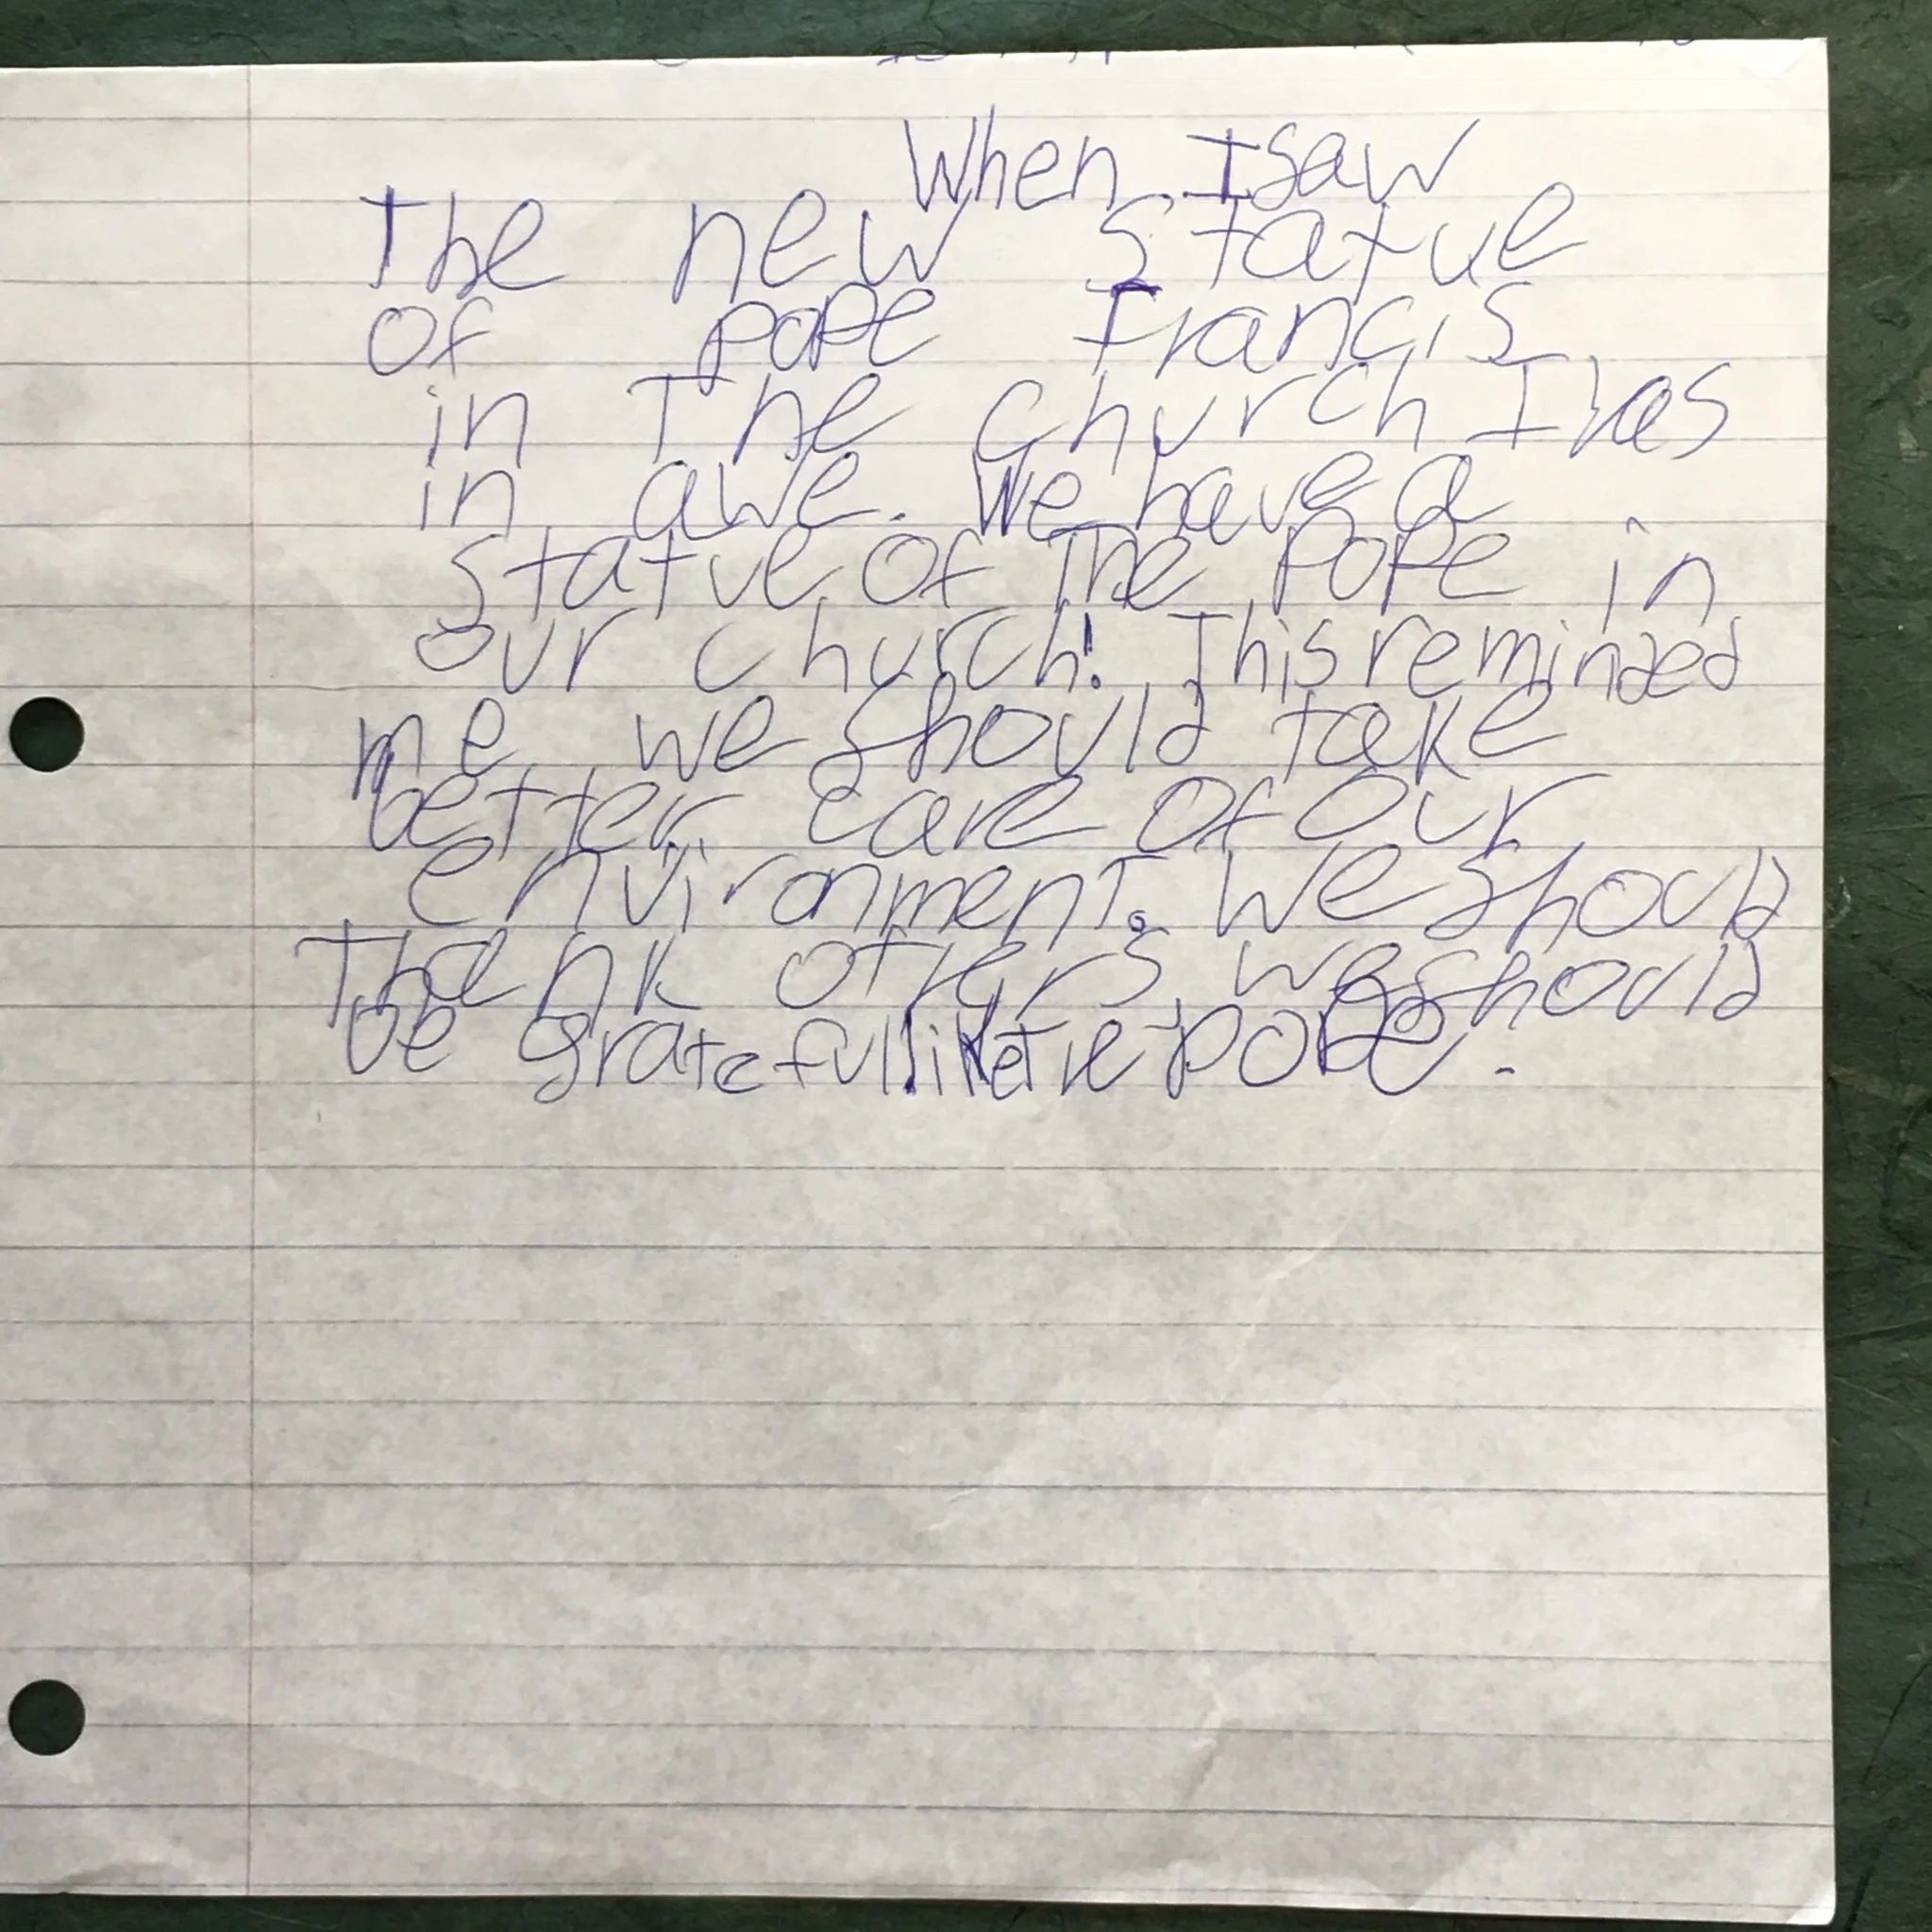 When I saw
The new statue
of pope Francis
in The church I was
in awe. We have a
statue of The pope in
our church! This reminded
me we should take
better care of our
environment. We should
Thank others we should
be grateful like the pope.